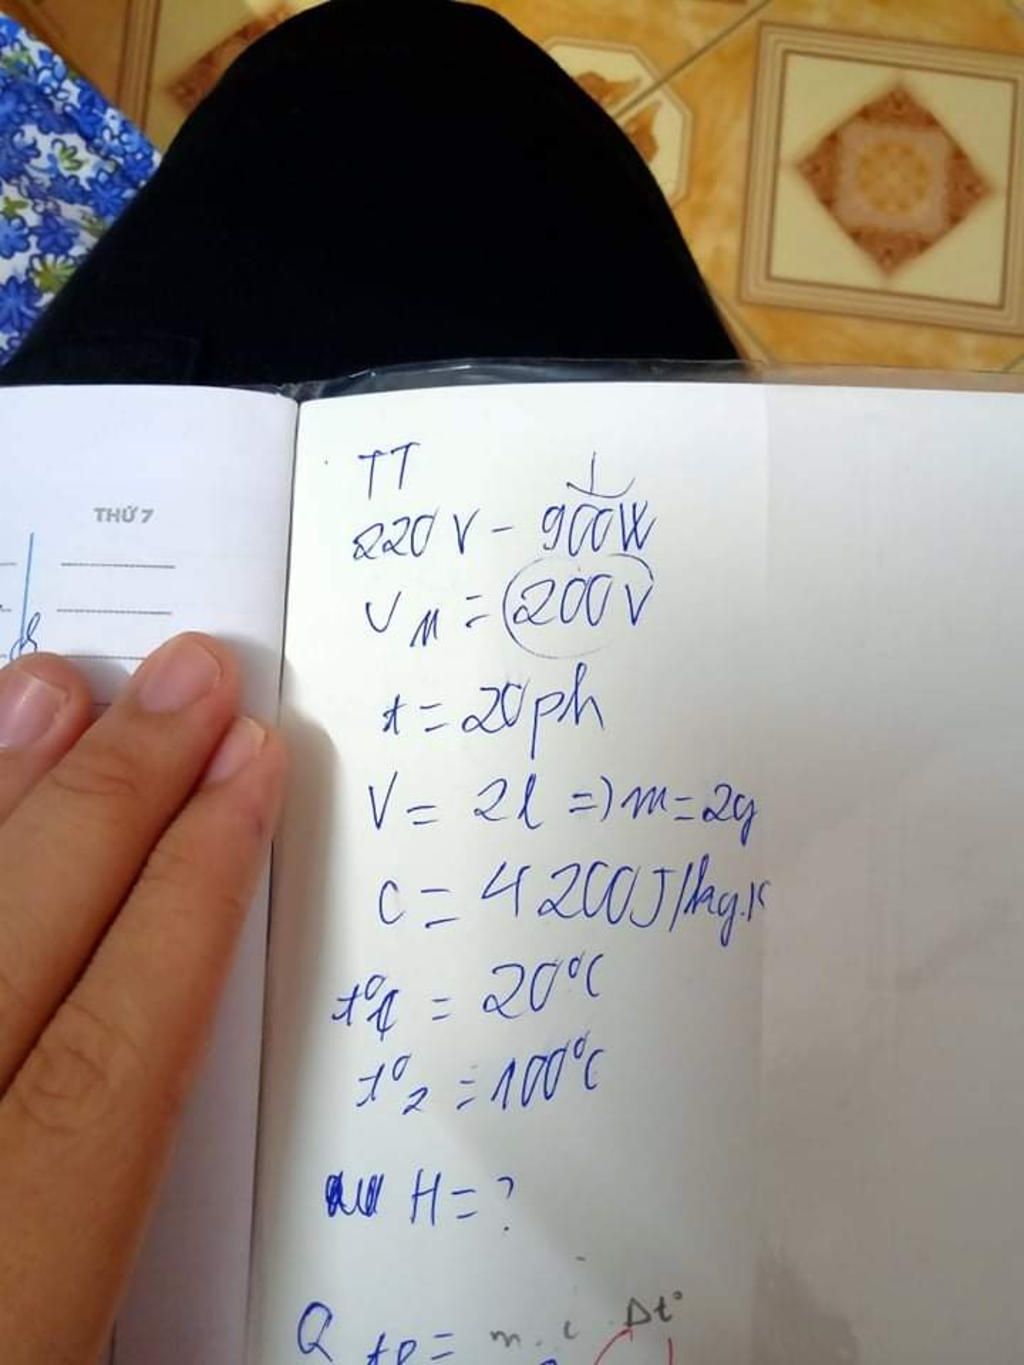 THỨ 7
TT
220V - 900W
UM = 200V
t = 20ph
V = 2l => m = 2g
C = 4200J/kg.K
t°1 = 20°C
t°2 = 100°C
H = ?
Q tp = m.c.Δt°